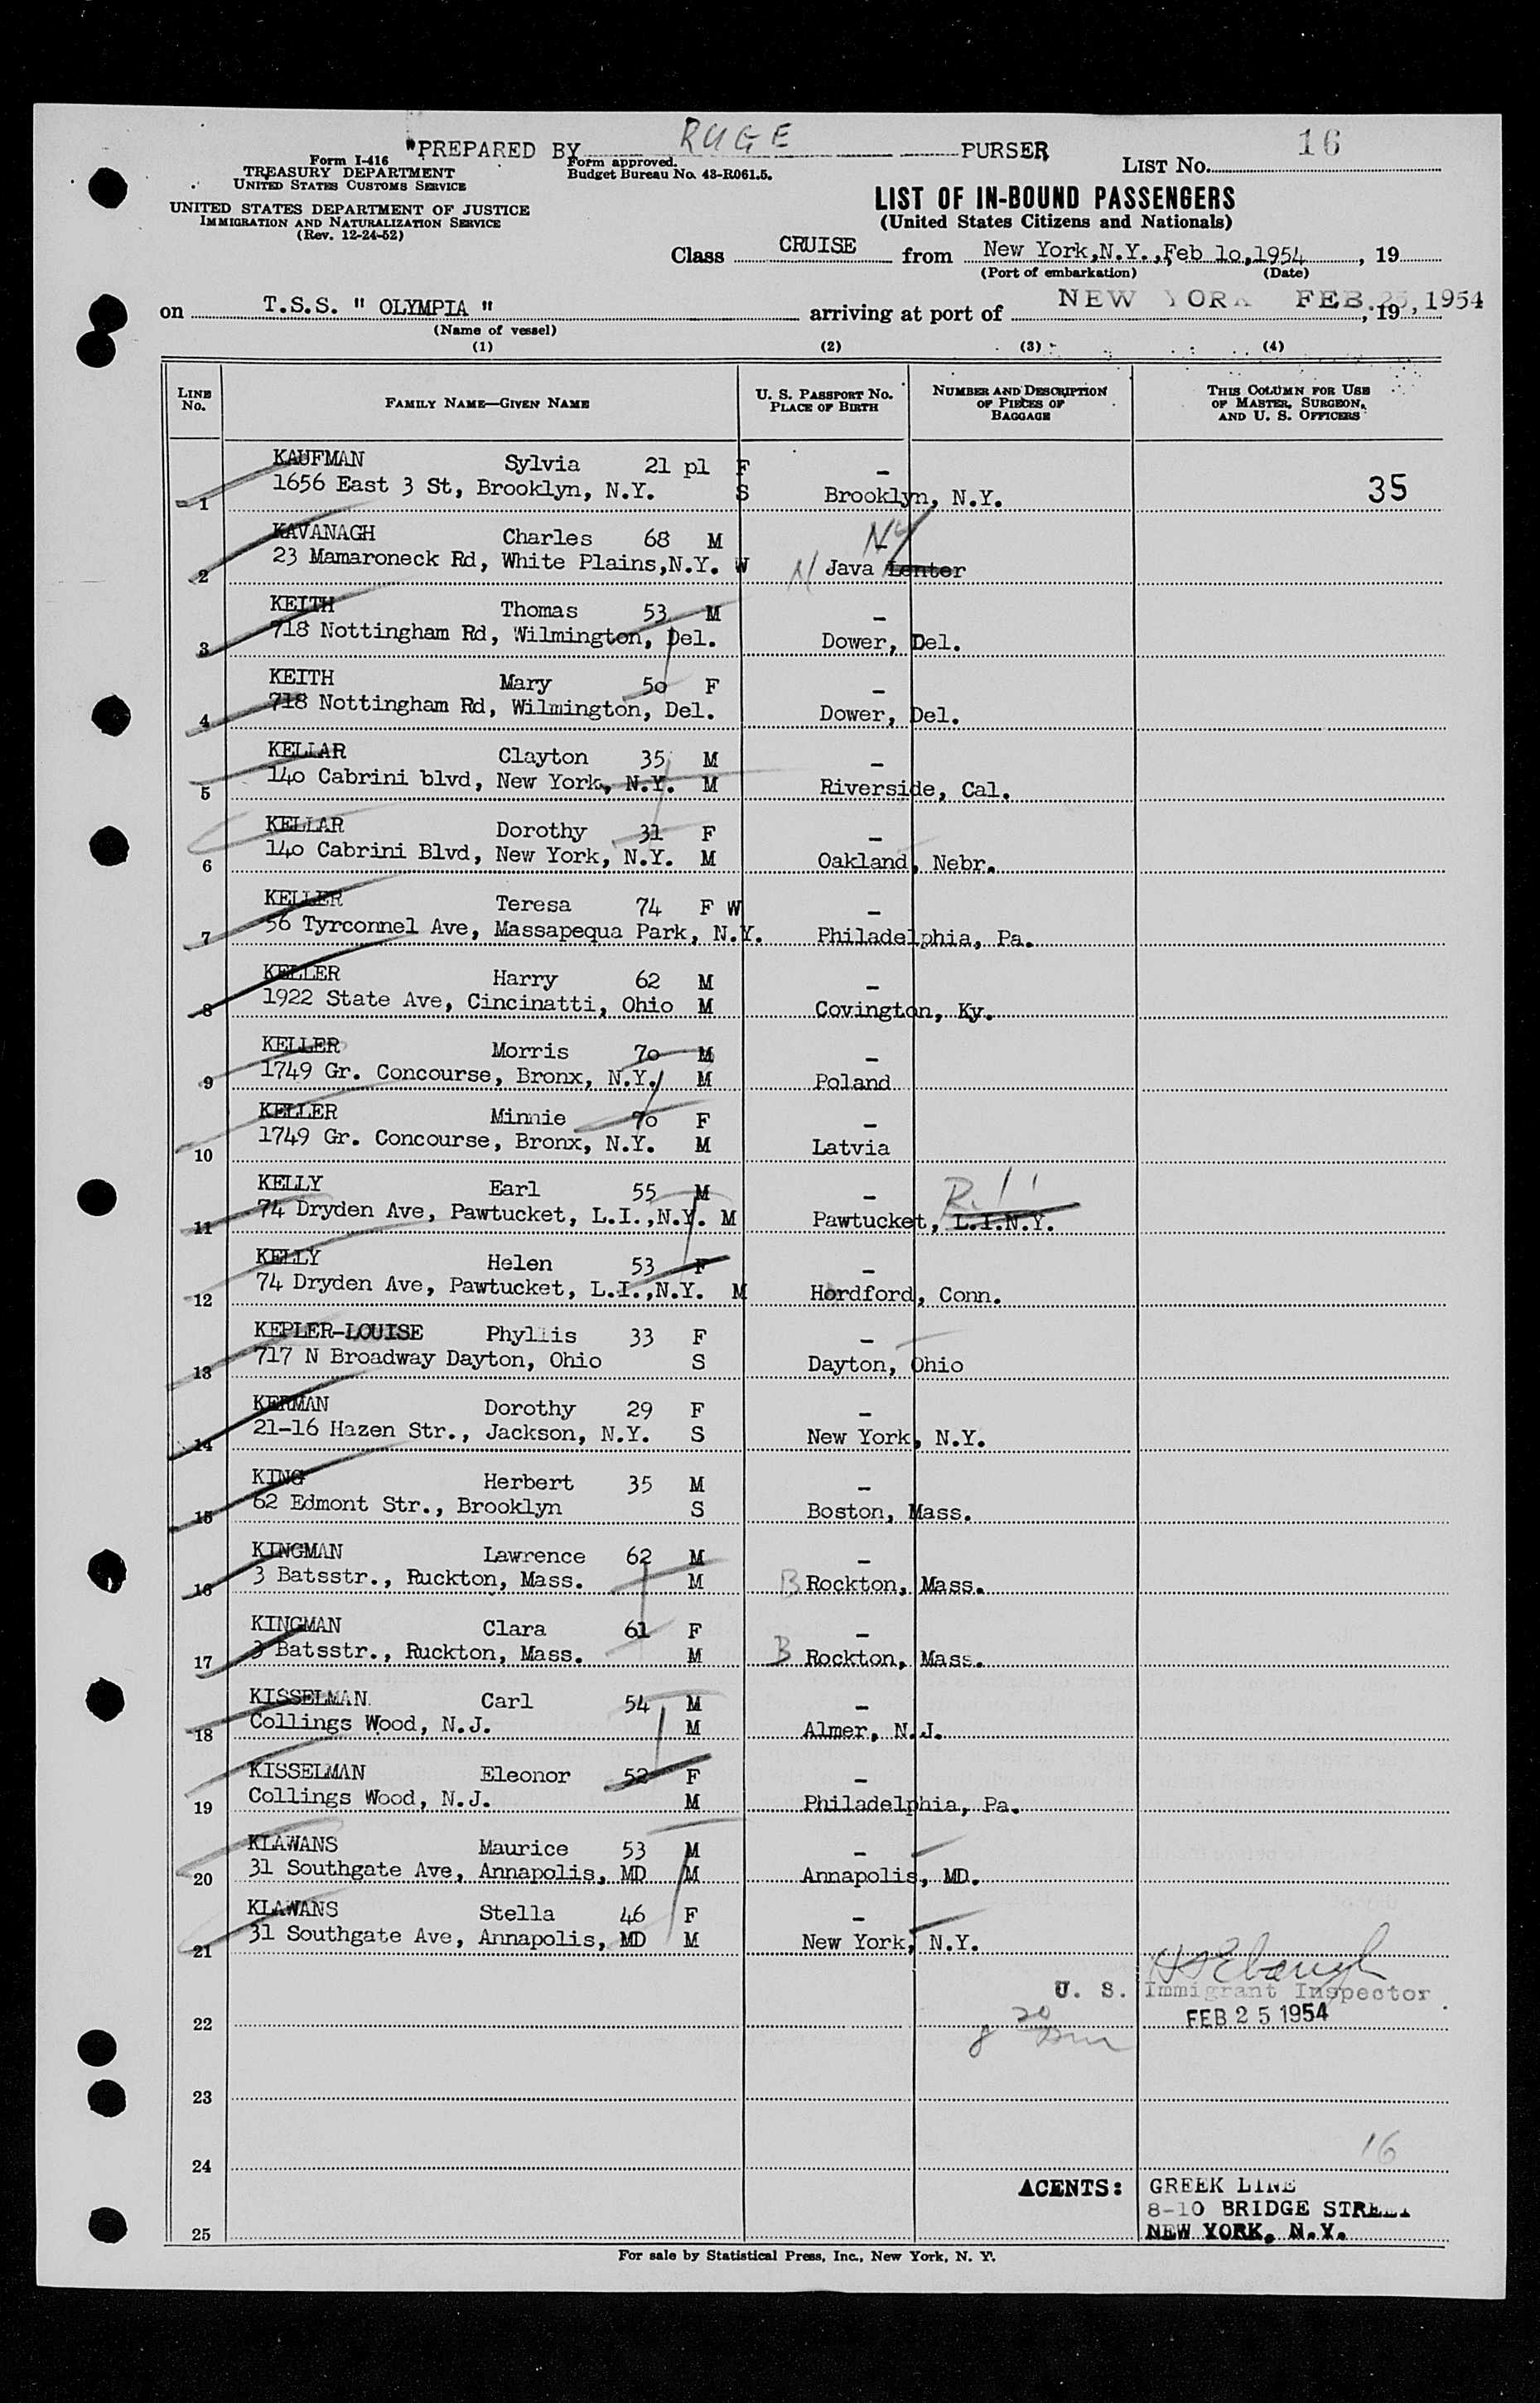 "PREPARED BY RUGE PURSER
16
Form I-416
TREASURY DEPARTMENT
UNITED STATES CUSTOMS SERVICE
Form approved.
Budget Bureau No. 43-R061.5.
LIST No.
UNITED STATES DEPARTMENT OF JUSTICE
IMMIGRATION AND NATURALIZATION SERVICE
(Rev. 12-24-52)
LIST OF IN-BOUND PASSENGERS
(United States Citizens and Nationals)
Class CRUISE from New York,N.Y.,Feb 10,1954, 19
(Port of embarkation) (Date)
on T.S.S. " OLYMPIA " arriving at port of NEW YORK FEB. 25, 1954 , 19
(Name of vessel)
(1) (2) (3) (4)
LINE No. FAMILY NAME—GIVEN NAME U. S. PASSPORT No. PLACE OF BIRTH NUMBER AND DESCRIPTION OF PIECES OF BAGGAGE THIS COLUMN FOR USE OF MASTER, SURGEON, AND U. S. OFFICERS
KAUFMAN Sylvia 21 pl F –
1 1656 East 3 St, Brooklyn, N.Y. S Brooklyn, N.Y. 35
KAVANAGH Charles 68 M NY
2 23 Mamaroneck Rd, White Plains,N.Y. W Java Lenter
KEITH Thomas 53 M –
3 718 Nottingham Rd, Wilmington, Del. Dower, Del.
KEITH Mary 50 F –
4 718 Nottingham Rd, Wilmington, Del. Dower, Del.
KELLAR Clayton 35 M –
5 140 Cabrini blvd, New York, N.Y. M Riverside, Cal.
KELLAR Dorothy 31 F –
6 140 Cabrini Blvd, New York, N.Y. M Oakland, Nebr.
KELLER Teresa 74 F W –
7 56 Tyrconnel Ave, Massapequa Park, N.Y. Philadelphia, Pa.
KELLER Harry 62 M –
8 1922 State Ave, Cincinatti, Ohio M Covington, Ky.
KELLER Morris 70 M –
9 1749 Gr. Concourse, Bronx, N.Y. M Poland
KELLER Minnie 70 F –
10 1749 Gr. Concourse, Bronx, N.Y. M Latvia
KELLY Earl 55 M –
11 74 Dryden Ave, Pawtucket, L.I.,N.Y. M Pawtucket, L.I.N.Y.
KELLY Helen 53 F –
12 74 Dryden Ave, Pawtucket, L.I.,N.Y. M Hordford, Conn.
KEPLER-LOUISE Phyllis 33 F –
13 717 N Broadway Dayton, Ohio S Dayton, Ohio
KERMAN Dorothy 29 F –
14 21-16 Hazen Str., Jackson, N.Y. S New York, N.Y.
KING Herbert 35 M –
15 62 Edmont Str., Brooklyn S Boston, Mass.
KINGMAN Lawrence 62 M –
16 3 Batsstr., Ruckton, Mass. M B Rockton, Mass.
KINGMAN Clara 61 F –
17 3 Batsstr., Ruckton, Mass. M B Rockton, Mass.
KISSELMAN Carl 54 M –
18 Collings Wood, N.J. M Almer, N.J.
KISSELMAN Eleonor 52 F –
19 Collings Wood, N.J. M Philadelphia, Pa.
KLAWANS Maurice 53 M –
20 31 Southgate Ave, Annapolis, MD M Annapolis, MD.
KLAWANS Stella 46 F –
21 31 Southgate Ave, Annapolis, MD M New York, N.Y.
U. S. Immigrant Inspector
22 FEB 25 1954
23
24 16
AGENTS: GREEK LINE
8-10 BRIDGE STREET
25 NEW YORK, N.Y.
For sale by Statistical Press, Inc., New York, N. Y.